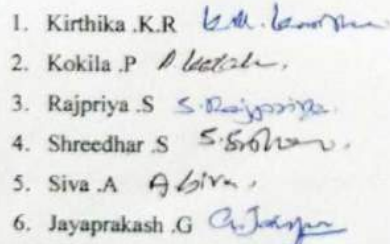 1. Kirthika .K.R
2. Kokila .P
3. Rajpriya .S S. Rajpriya.
4. Shreedhar .S
5. Siva .A A Siva.
6. Jayaprakash .G